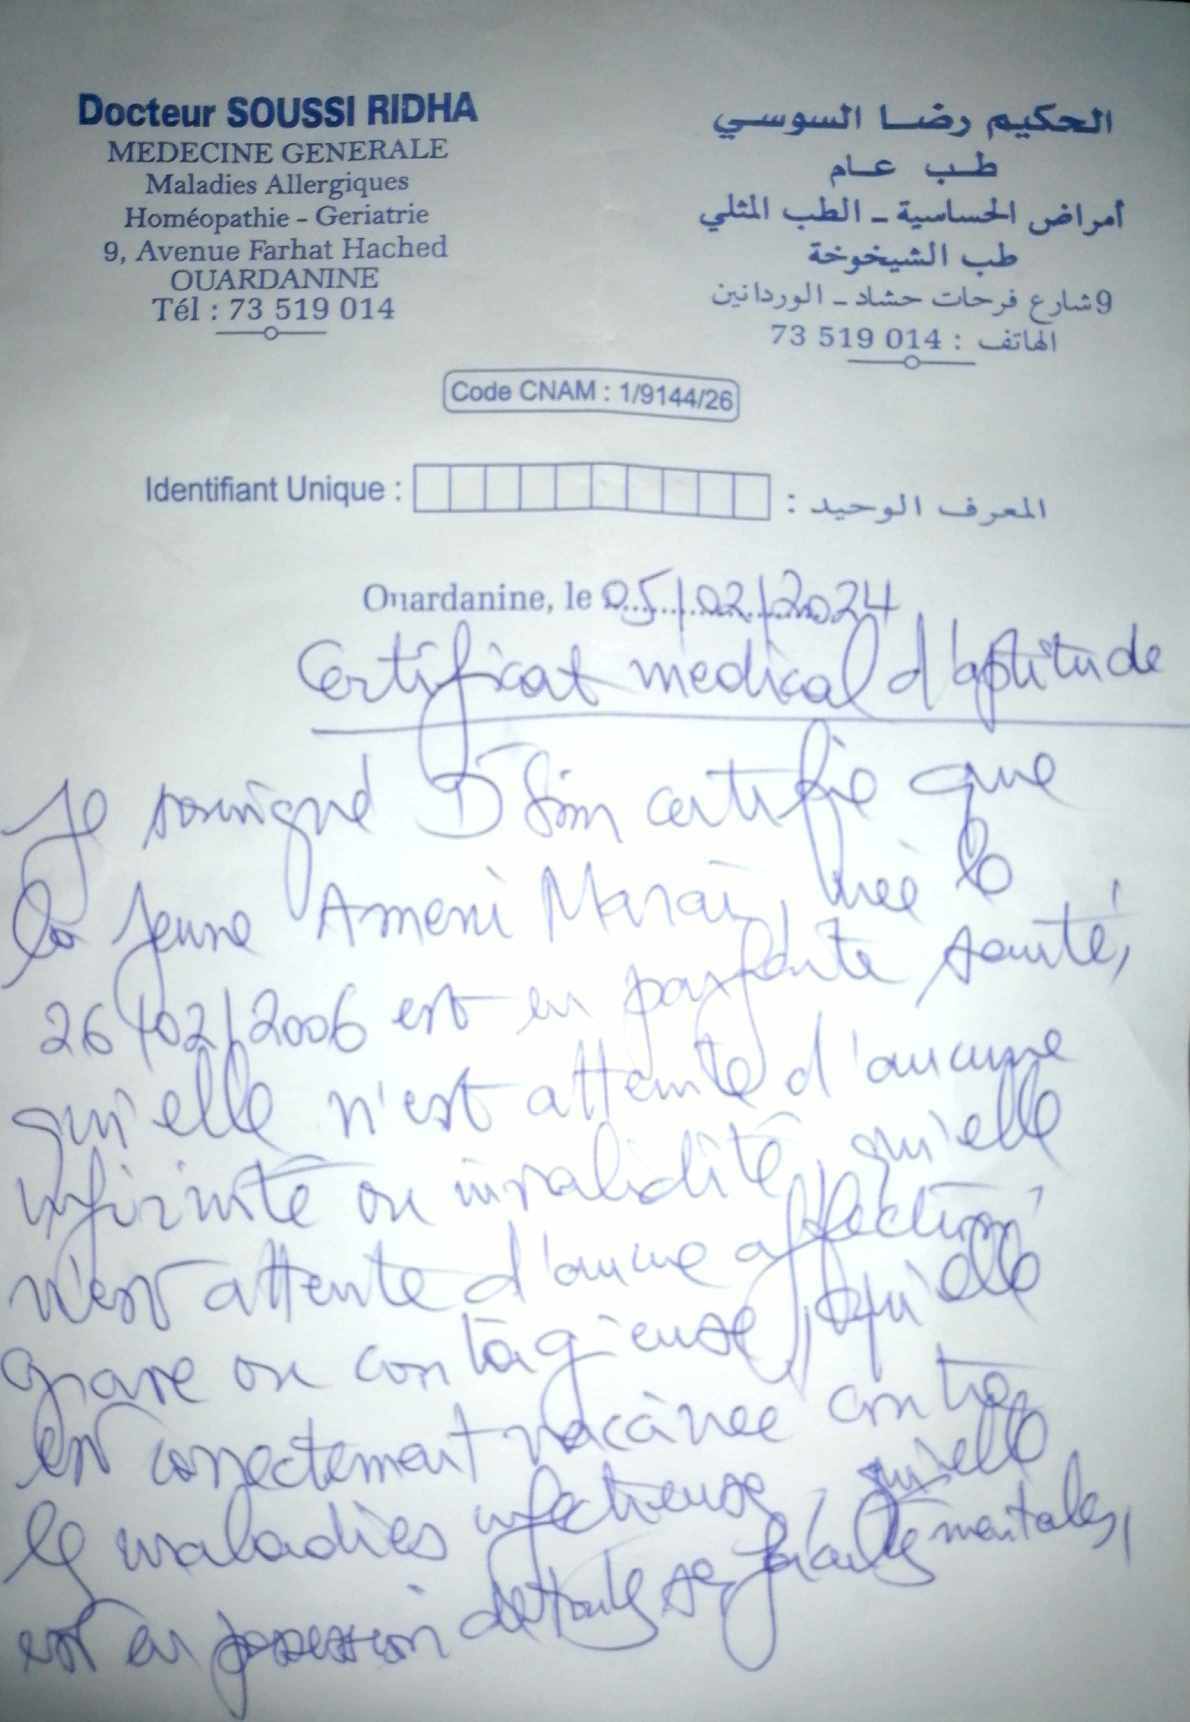 Docteur SOUSSI RIDHA
MEDECINE GENERALE
Maladies Allergiques
Homéopathie - Geriatrie
9, Avenue Farhat Hached
OUARDANINE
Tél : 73 519 014
الحكيم رضا السوسي
طب عام
أمراض الحساسية - الطب المثلي
طب الشيخوخة
9 شارع فرحات حشاد - الوردانين
الهاتف : 73 519 014
Code CNAM : 1/9144/26
Identifiant Unique :
المعرف الوحيد :
Ouardanine, le 05/02/2024
Certificat medical d'aptitude
Je certifie que
la jeune Ameni Marai, née le
26/02/2006 est en parfaite santé,
qu'elle n'est atteinte d'aucune
infirmité ou invalidité, qu'elle
n'est attente d'aucune affection
grave ou contagieuse, qu'elle
est correctement vaccinée contre
les maladies infectieuse, qu'elle
est en possession de toutes ses facultés mentales,